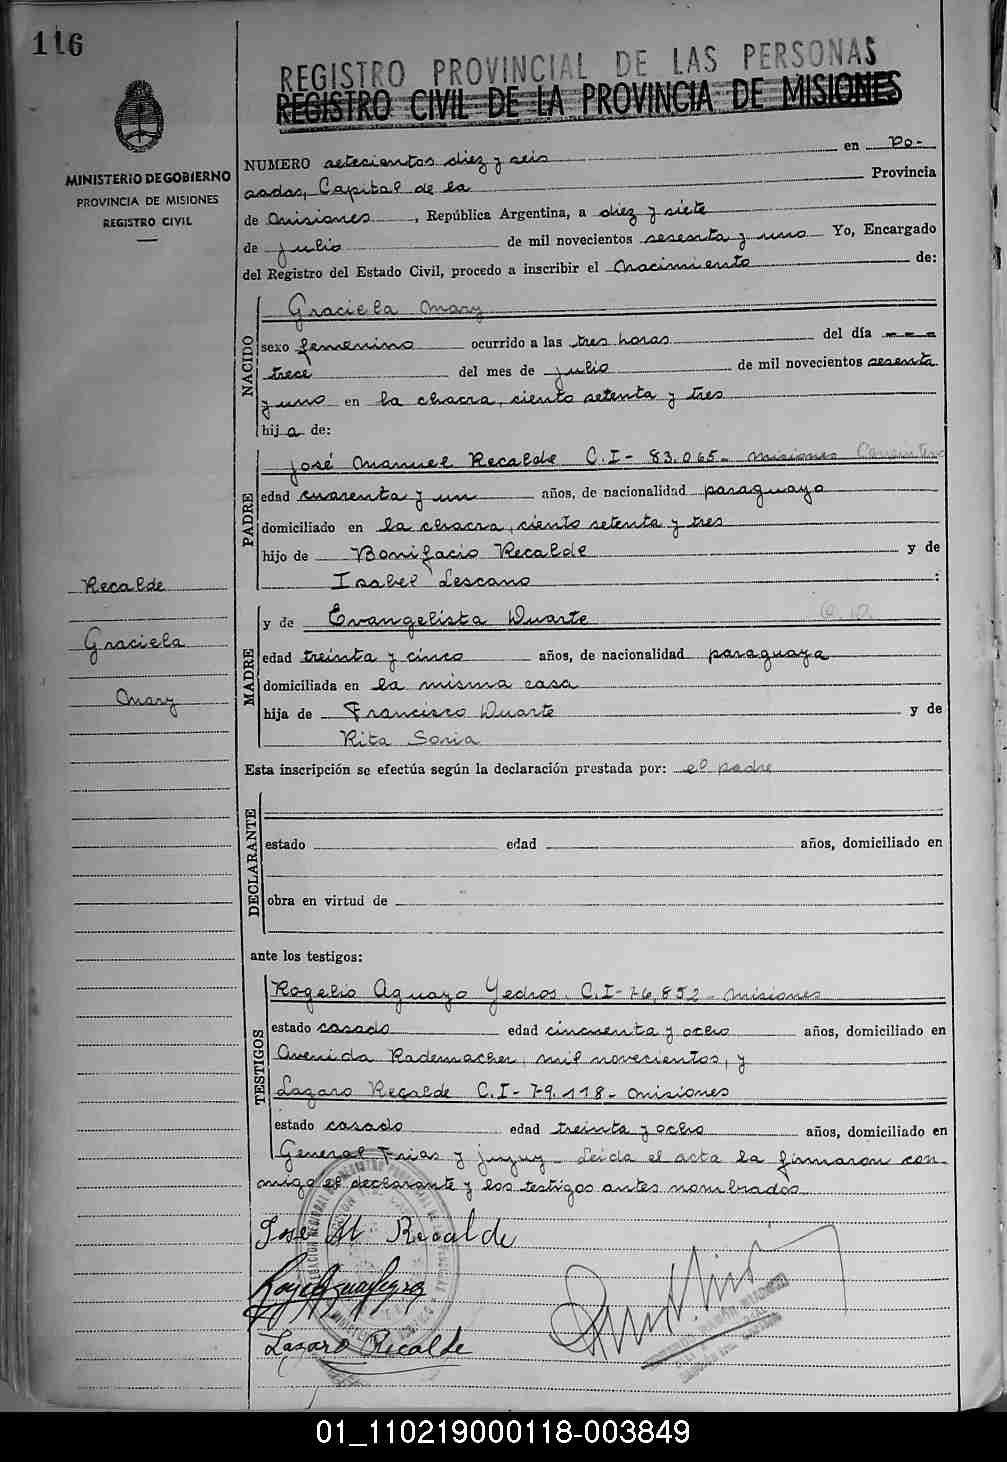 116
REGISTRO PROVINCIAL DE LAS PERSONAS
REGISTRO CIVIL DE LA PROVINCIA DE MISIONES
MINISTERIO DE GOBIERNO
PROVINCIA DE MISIONES
REGISTRO CIVIL
NUMERO setecientos diez y seis en Po-
sadas, Capital de la Provincia
de Misiones, República Argentina, a diez y siete
de julio de mil novecientos sesenta y uno Yo, Encargado
del Registro del Estado Civil, procedo a inscribir el Nacimiento de:
NACIDO
Graciela Mary
sexo femenino ocurrido a las tres horas del día - - -
trece del mes de julio de mil novecientos sesenta
y uno en la chacra, ciento setenta y tres
hija de:
PADRE
José Manuel Recalde C.I- 83.065- Misiones
edad cuarenta y un años, de nacionalidad paraguayo
domiciliado en la chacra, ciento setenta y tres
hijo de Bonifacio Recalde y de
Isabel Lescano :
Recalde
Graciela
Mary
MADRE
y de Evangelista Duarte
edad treinta y cinco años, de nacionalidad paraguaya
domiciliada en la misma casa
hija de Francisco Duarte y de
Rita Soria
Esta inscripción se efectúa según la declaración prestada por: el padre
DECLARANTE
estado edad años, domiciliado en
obra en virtud de
ante los testigos:
TESTIGOS
Rogelio Aguayo Yedros. C.I- 76,852- Misiones
estado casado edad cincuenta y ocho años, domiciliado en
Avenida Rademacher, mil novecientos, y
Lazaro Recalde C.I- 79.118- Misiones
estado casado edad treinta y ocho años, domiciliado en
General Frias y jujuy- Leida el acta la firmaron con-
migo el declarante y los testigos antes nombrados
José M Recalde
Lazaro Recalde
01_110219000118-003849